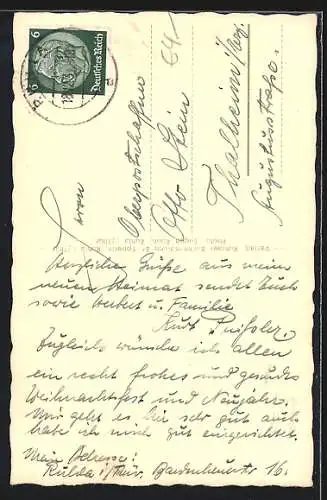 6
6
Deutsches Reich
Herrn
Oberpostschaffner
Otto Stein
Thalheim i/Erzg.
Augustusstraße.
Herzliche Grüße aus mein
neuen Heimat sendet Euch
sowie Herbert u. Familie
Kurt
Zugleich wünsche ich allen
ein recht frohes und gesundes
Weihnachtsfest und Neujahr.
Mir geht es hier sehr gut auch
habe ich mich gut eingerichtet.
Mein Adresse:
Ruhla i/Thür. 16.